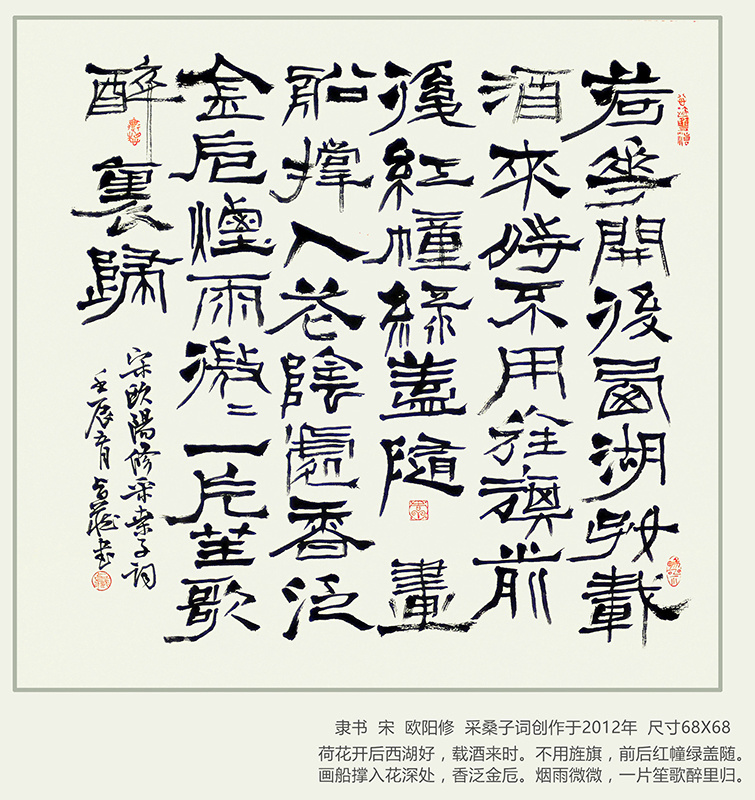 荷華開後西湖好載
酒來時不用旌旗前
後紅幢綠蓋隨 畫
船撐入花陰處香泛
金卮煙雨微〻一片笙歌
醉裏歸
宋歐陽修采桑子詞
壬辰 書
隶书 宋 欧阳修 采桑子词创作于2012年 尺寸68X68
荷花开后西湖好，载酒来时。不用旌旗，前后红幢绿盖随。
画船撑入花深处，香泛金卮。烟雨微微，一片笙歌醉里归。